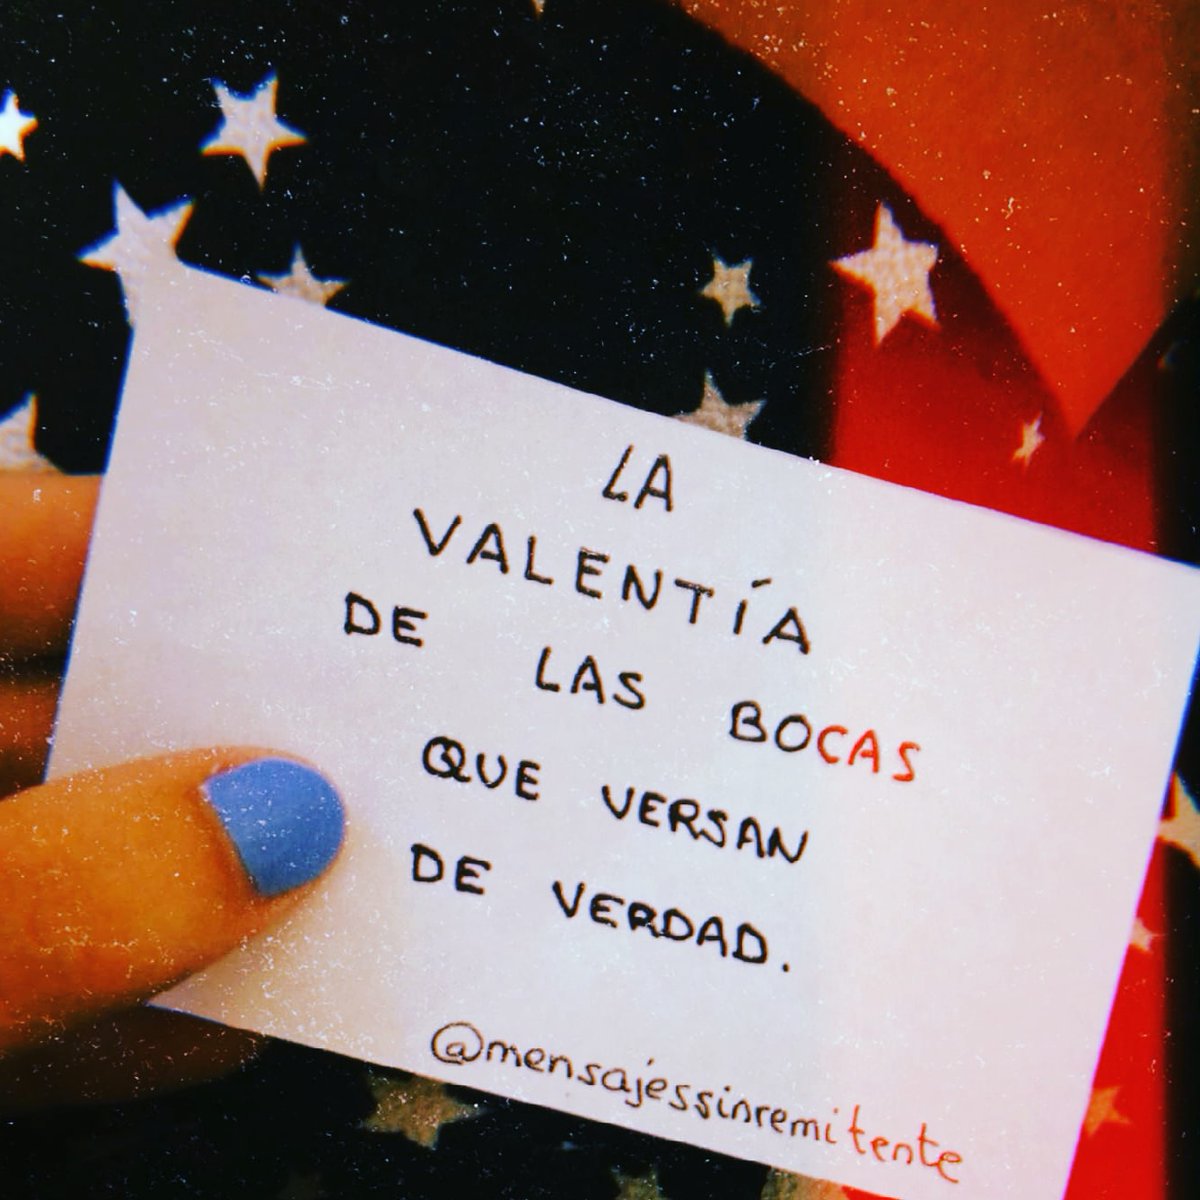 LA
VALENTÍA
DE LAS BOCAS
QUE VERSAN
DE VERDAD.
@mensajessinremitente